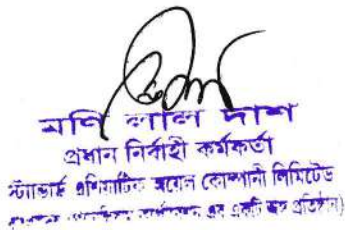 মণি লাল দাশ
প্রধান নির্বাহী কর্মকর্তা
স্ট্যান্ডার্ড এশিয়াটিক অয়েল কোম্পানী লিমিটেড
এর একটি অঙ্গ প্রতিষ্ঠান)